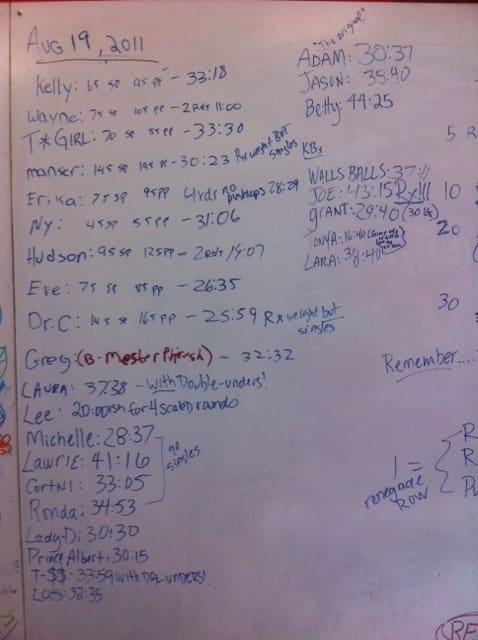 AUG 19, 2011
Kelly: 65 SP 95 PP - 33:18
Wayne: 75 SP 105 PP - 2 Rds 11:00
T*GIRL: 70 SP 85 PP - 33:30
manser: 145 SP PP - 30:23 Rx weight But singles
Erika: 75 SP 95PP 4 rds no pushups 28:29
Ny: 45 SP 55 PP - 31:06
Hudson: 95 SP 125PP - 2 Rds 19:07
Eve: 75 SP 85 PP - 26:35
Dr. C: 145 SP 165 PP - 25:59 Rx weight but singles
Greg: (B-Mester) - 32:32
LAURA: 37:38 - with Double-unders!
Lee: 20:00ish for 4 scaled rounds
Michelle: 28:37
LAWRIE: 41:16
CortNI: 33:05
Ronda: 34:53
90 singles
Lady-Di: 30:30
Prince Albert: 30:15
T-$$: 33:59 with DBL UNDERS!
LOS: 32:35
"The originals"
ADAM: 30:37
JASON: 35:40
Betty: 44:25
KBs
WALLS BALLS: 37:11
JOE: 43:15 Rx!!!
gRANT: 29:40
TONYA: 16:40
LARA: 38:40
5 R
10
20
30
Remember....
1 = renegade Row
R
R